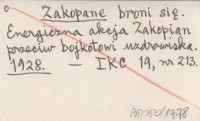 Zakopane broni się.
Energiczna akcja Zakopian
przeciw bojkotowi uzdrowiska.
1928. — IKC 19, nr 213.